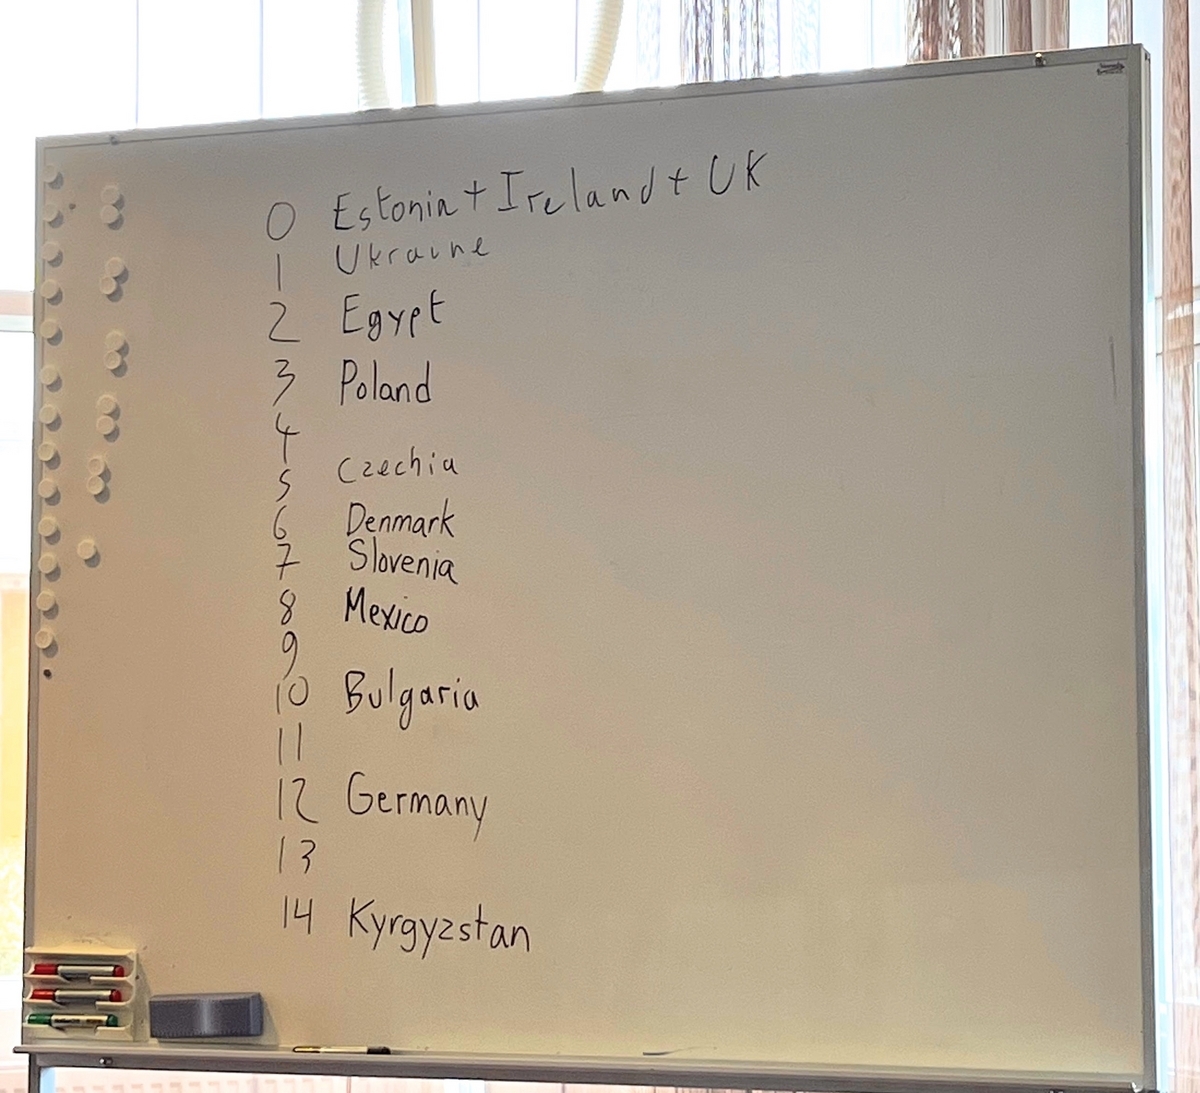 0 Estonia + Ireland + UK
1 Ukraine
2 Egypt
3 Poland
4
5 Czechia
6 Denmark
7 Slovenia
8 Mexico
9
10 Bulgaria
11
12 Germany
13
14 Kyrgyzstan